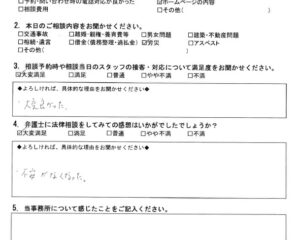 □予約・問い合わせ時の電話対応が良かった ☑ホームページの内容
□相談費用 □その他( )
2. 本日のご相談内容をお聞かせください。
□交通事故 □離婚・親権・養育費等 □男女問題 □建築・不動産問題
□相続・遺言 □借金(債務整理・過払金) ☑労災 □アスベスト
□その他( )
3. 相談予約時や相談日当日のスタッフの接客・対応について満足度をお聞かせください。
☑大変満足 □満足 □普通 □やや不満 □不満
◆よろしければ、具体的な理由をお聞かせください◆
大変良かった。
4. 弁護士に法律相談をしてみての感想はいかがでしたでしょうか?
☑大変満足 □満足 □普通 □やや不満 □不満
◆よろしければ、具体的な理由をお聞かせください◆
・不安がなくなった。
5. 当事務所について感じたことをご記入ください。